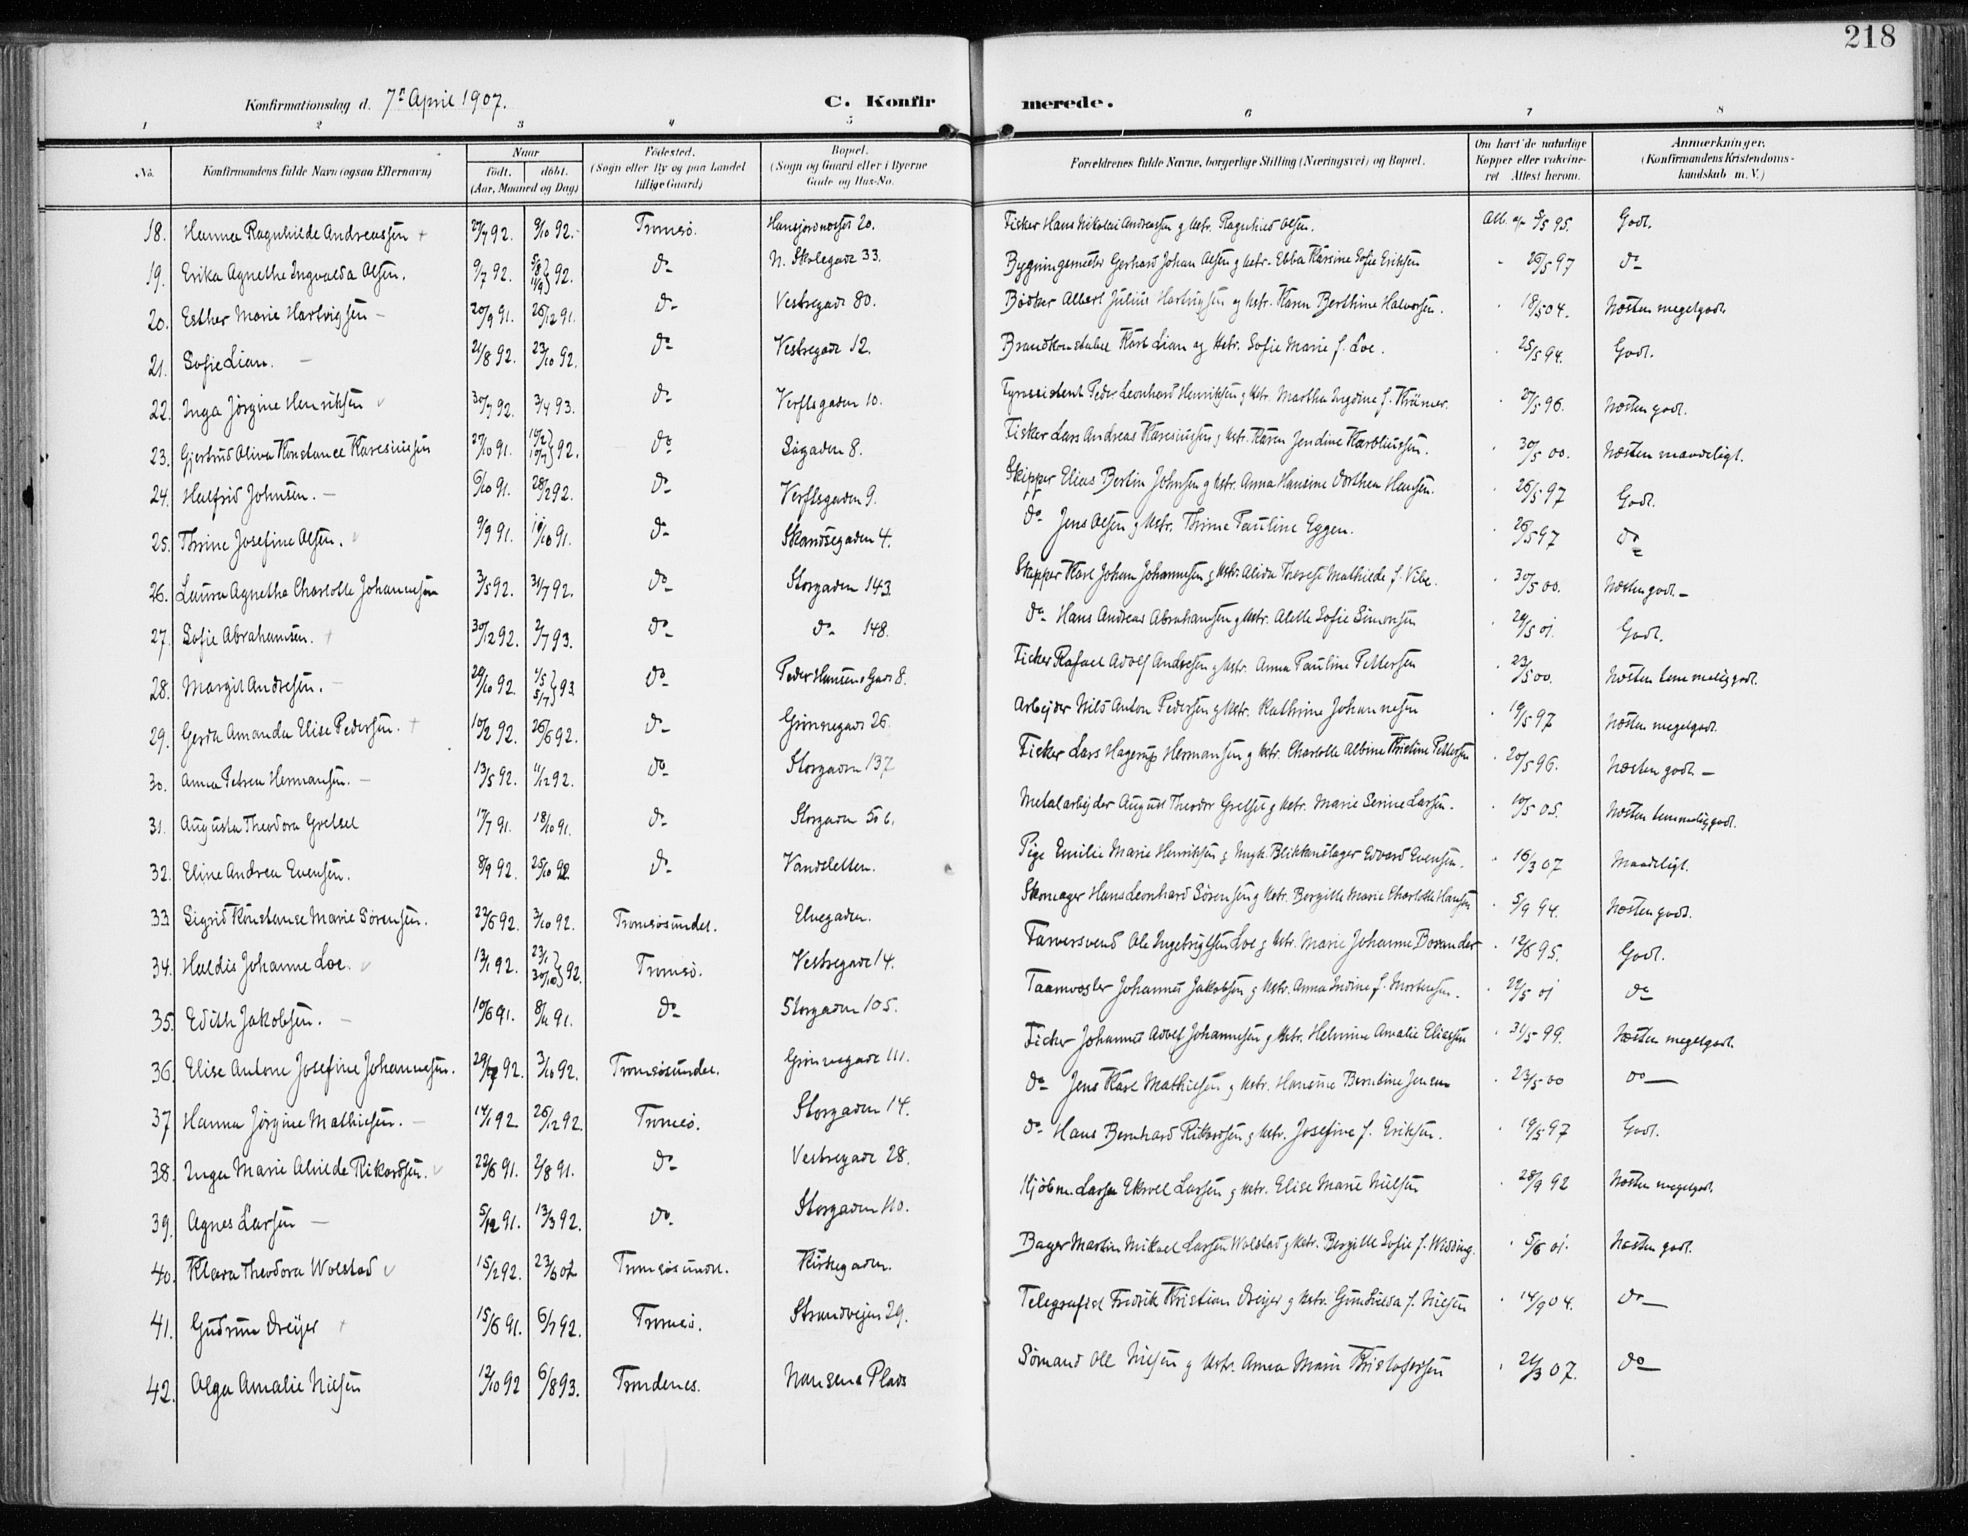 218
Konfirmationsdag d. 7de April 1907.
C. Konfirmerede.
1 2 3 4 5 6 7 8
No. Konfirmandens fulde Navn (ogsaa Efternavn) Naar født. døbt. (Aar, Maaned og Dag) Fødested. (Sogn eller By og paa Landet tillige Gaard) Bopæl. (Sogn og Gaard eller i Byerne Gade og Hus-No. Forældrenes fulde Navne, borgerlige Stilling (Næringsvei) og Bopæl. Om havt de naturlige Kopper eller vakcineret Attest herom. Anmærkninger. (Konfirmandens Kristendomskundskab m. V.)
18. Hanna Ragnhilde Andreassen + 27/7 92. 9/10 92. Tromsö. 20. Fisker Hans Nikolai Andreassen g Hstr. Ragnhild Olsen. Att. af 5/5 95. Godt.
19. Erika Agnethe Ingvalda Olsen. 9/7 92. 5/8 11/9 } 92. do N. Skolegade 33. Bygningsmester Gerhard Johan Olsen g Hstr. Ebba Karsine Sofie Eriksen 26/5 97 do
20. Esther Marie Hartvigsen - 20/9 91. 26/12 91. do Vestregade 80. Bødker Albert Julius Hartvigsen og Hstr. Karen Berthine Halvorsen. 18/5 04. Næsten megetgodt.
21. Sofie Lian. - 21/8 92. 23/10 92. do Vestregade 12. Brandkonstabel Karl Lian og Hstr. Sofie Marie f. Loe. 25/5 94. Godt.
22. Inga Jörgine Henriksen v 30/7 92. 3/4 93. do Verftsgaden 10. Fyrassistent Peder Leonhard Henriksen g Hstr. Martha Ingdine f. Krämer. 27/5 96. Næsten godt.
23. Gjertrud Oliva Konstance Karesiussen 27/10 91. 92. do Søgaden 8. Fisker Lars Andreas Karesiussen g Hstr. Karen Jendine Karoliussen. 30/5 00. Næsten maadeligt.
24. Halfrid Johnsen. - 6/10 91. 28/2 92. do Verftsgaden 9. Skipper Elias Bertin Johnsen g Hstr. Anna Hansine Dorthea Hansen. 26/5 97 Godt.
25. Thrine Josefine Olsen. v 9/9 91. 11/10 91. do Skandsegaden 4. do Jens Olsen g Hstr. Thrine Pauline Eggen. 26/5 97 do
26. Laura Agnetha Charlotte Johannesen 3/5 92. 31/7 92. do Storgaden 143. Skipper Karl Johan Johannesen g Hstr. Alida Therese Mathilde f. Vibe. 30/5 00. Næsten godt. -
27. Sofie Abrahamsen. + 30/12 92. 2/7 93. do do 148. do Hans Andreas Abrahamsen g Hstr. Alette Sofie Simonsen 24/5 01. Godt.
28. Margit Andresen. - 29/10 92. 4/5 5/7 } 93 do Peder Hansens Gade 8. Fisker Rafael Adolf Andresen g Hstr. Anna Pauline Pettersen 23/5 00. Næsten temmelig godt.
29. Gerda Amanda Elise Pedersen. + 10/2 92. 26/6 92. do Grönnegade 26. Arbejder Nils Anton Pedersen g Hstr. Kathrine Johannesen 19/5 97 Næsten megetgodt.
30. Anna Petrea Hermansen. - 13/5 92. 11/12 92. do Storgaden 137 Fisker Lars Hagerup Hermansen g Hstr. Charlotte Albine Kristine Pettersen 20/5 96. Næsten godt -
31. Augusta Theodora Gretsel 17/7 91. 18/10 91. do Storgaden 50 b. Metalarbejder August Theodor Gretsel g Hstr. Marie Serine Larsen. 10/5 05. Næsten temmelig godt.
32. Eline Andrea Evensen. 8/9 92. 25/10 92. do Vandsletten. Pige Emilie Marie Henriksen g Ungk. Blikkenslager Edvard Evensen. 16/3 07 Maadeligt.
33 Sigrid Konstanse Marie Sörensen. 22/6 92. 3/10 92. Tromsösundet. Elvegaden. Skomager Hans Leonhard Sörensen g Hstr. Bergitte Marie Charlotte Hansen 5/9 94. Næsten godt.
34. Haldis Johanne Loe. v 13/1 92. 23/1 30/10 } 92. Tromsö. Vestregade 14. Farversvend Ole Ingebrigtsen Loe g Hstr. Marie Johanne Bosander 12/6 95. Godt.
35. Edith Jakobsen. - 10/6 91. 8/11 91. do Storgaden 105. Johannes Jakobsen g Hstr. Anna Indine f. Mortensen. 22/5 01 do
36. Elise Antone Josefine Johannesen. 29/7 92. 3/10 92. Tromsösundet. Grönnegade 111. Fisker Johannes Adolf Johannesen g Hstr. Helmine Amalie Eliassen 31/5 99. Næsten megetgodt.
37 Hanna Jörgine Mathiesen. - 14/1 92. 26/12 92. Tromsö. Storgaden 14. do Jens Karl Mathiesen g Hstr. Hansine Berndine Jensen 23/5 00 do -
38. Inga Marie Alvilde Rikardsen. v 22/6 91. 2/8 91. do Vestregade 28. do Hans Bernhard Rikardsen g Hstr. Josefine f. Eriksen. 19/5 97 Godt.
39. Agnes Larsen - 5/12 91. 13/3 92. do. Storgaden 110. Larsen g Hstr. Elise Marie Nielsen 28/9 92 Næsten megetgodt.
40. Klara Theodora Wolstad v 15/2 92. 23/6 02 Tromsösundet. Kirkegaden. Bager Martin Mikael Larsen Wolstad g Hstr. Bergitte Sofie f. Widding. 5/6 01. Næsten godt.
41. Gudrun Dreyer + 15/6 91. 6/7 92. Tromsö. Strandvejen 29. Telegrafist Fredrik Kristian Dreyer g Hstr. Gunhilda f. Nielsen 14/9 04. do -
42. Olga Amalie Nielsen 12/10 92 6/8 93. Trondenes. Nansens Plads Sömand Ole Nielsen g Hstr. Anna Marie Kristofersen 21/3 07. do